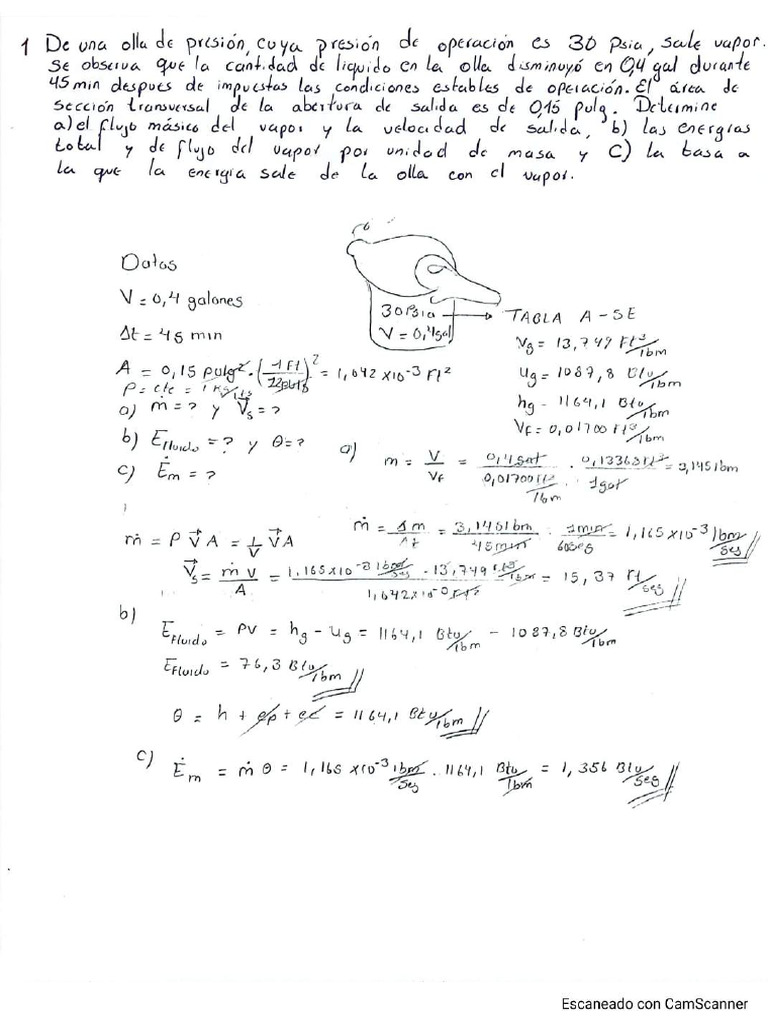 1 De una olla de presión, cuya presión de operación es 30 Psia, sale vapor.
Se observa que la cantidad de liquido en la olla disminuyó en 0,4 gal durante
45 min despues de impuestas las condiciones estables de operación. El área de
sección transversal de la abertura de salida es de 0,15 pulg. Determine
a) el flujo másico del vapor y la velocidad de salida, b) las energías
total y de flujo del vapor por unidad de masa y C) la tasa a
la que la energía sale de la olla con el vapor.
Datos
V = 0,4 galones
30 Psia
V = 0,4 gal
TABLA A - 5E
Δt = 45 min
Vg = 13,749 Ft³/lbm
A = 0,15 pulg² · (1 Ft / 12 pulg)² = 1,042 x10⁻³ Ft²
ug = 1087,8 Btu/lbm
hg - 1164,1 Btu/lbm
a) ṁ = ? y V⃗s = ?
VF = 0,01700 Ft³/lbm
b) EFluido = ? y θ = ?
c) Ėm = ?
a) m = V/VF = 0,4 gal / 0,01700 Ft³/lbm · 0,13368 Ft³ / 1 gal = 3,145 lbm
ṁ = ρ V⃗ A = 1/V V⃗ A
ṁ = Δm/Δt = 3,145 lbm / 45 min · 1 min / 60 seg = 1,165 x10⁻³ lbm/seg
V⃗s = ṁ v / A = 1,165 x10⁻³ lbm/seg · 13,749 Ft³/lbm / 1,042 x10⁻³ Ft² = 15,37 Ft/seg
b)
EFluido = PV = hg - ug = 1164,1 Btu/lbm - 1087,8 Btu/lbm
EFluido = 76,3 Btu/lbm
θ = h + ep + ec = 1164,1 Btu/lbm
c) Ėm = ṁ θ = 1,165 x10⁻³ lbm/seg · 1164,1 Btu/lbm = 1,356 Btu/seg
Escaneado con CamScanner